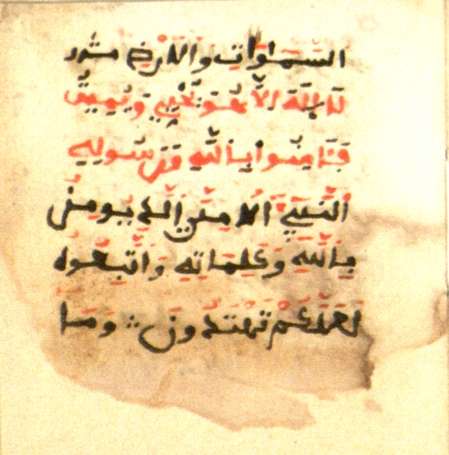 السَّمَوَاتِ وَالارض
لَا إِلَهَ إِلَّا هُوَ يُحْيِي وَيُمِيتُ
فَئَامِنُوا بِاللَّهِ وَرَسُولِهِ
النَّبِيِّ الامي الذي يومن
بِاللَّهِ وَكَلِمَاتِهِ وَاتَّبِعُوه
لَعَلَّكُمْ تَهْتَدُونَ ؞ وَمَا